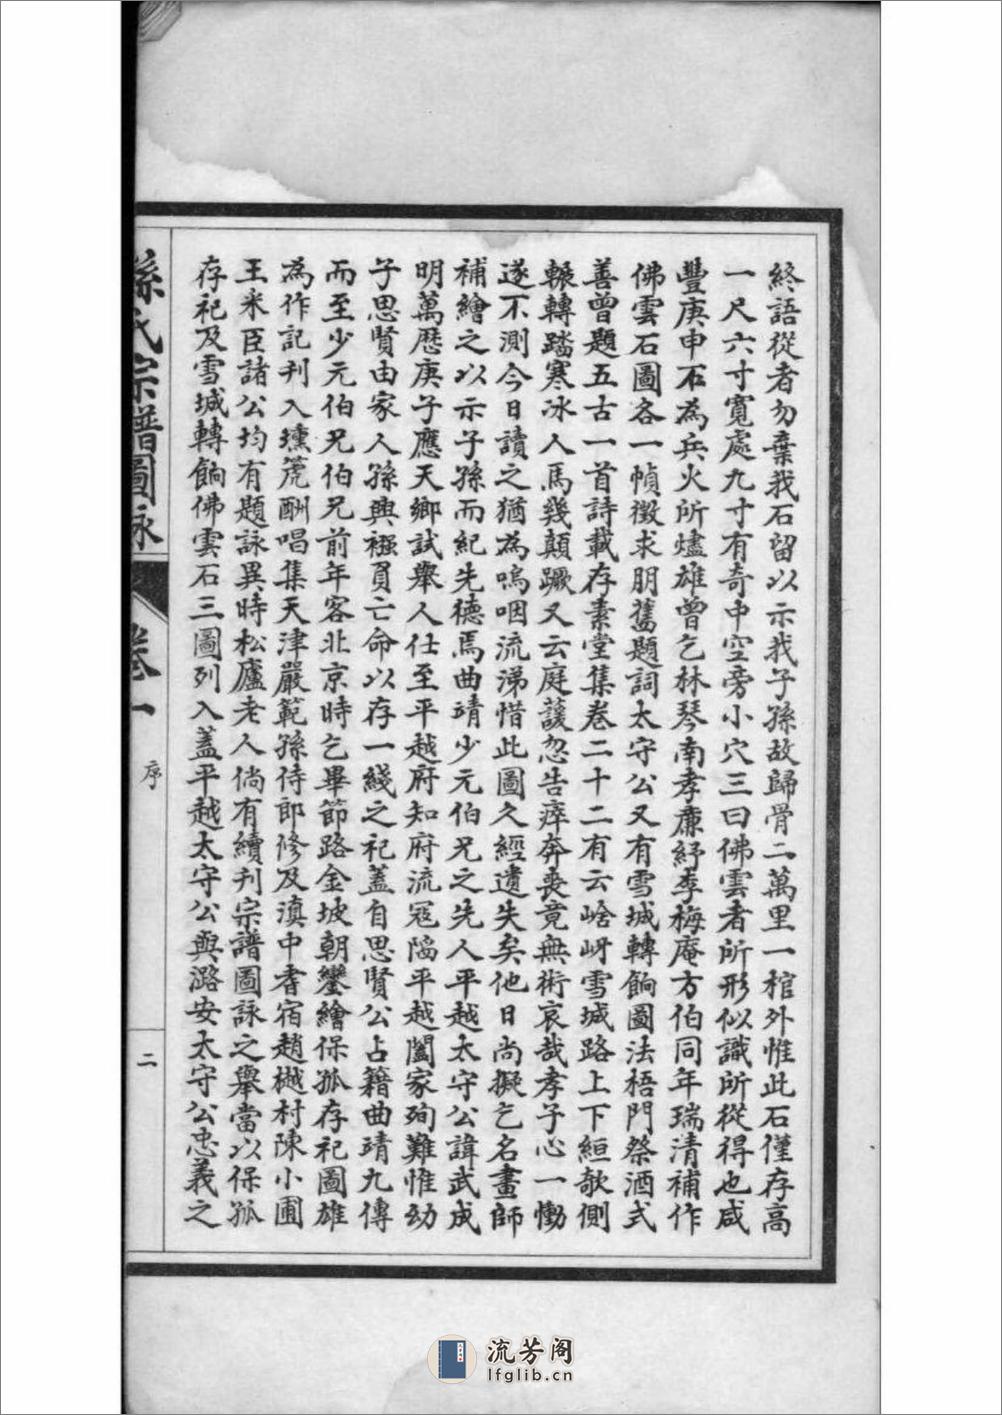 終語從者勿棄我石留以示我子孫故歸骨二萬里一棺外惟此石僅存高
一尺六寸寬處九寸有奇中空旁小穴三曰佛雲者所形似識所從得也咸
豐庚申石為兵火所燼雄曾乞林琴南孝廉紓李梅庵方伯同年瑞清補作
佛雲石圖各一幀徵求朋舊題詞太守公又有雪城轉餉圖法梧門祭酒式
善曾題五古一首詩載存素堂集卷二十二有云峆岈雪城路上下絙欹側
輾轉踏寒冰人馬幾顛蹶又云庭諼忽告瘁奔喪竟無術哀哉孝子心一慟
遂不測今日讀之猶為嗚咽流涕惜此圖久經遺失矣他日尚擬乞名畫師
補繪之以示子孫而紀先德焉曲靖少元伯兄之先人平越太守公諱武成
明萬歷庚子應天鄉試舉人仕至平越府知府流寇陷平越闔家殉難惟幼
子思賢由家人孫興襁負亡命以存一綫之祀蓋自思賢公占籍曲靖九傳
而至少元伯兄伯兄前年客北京時乞畢節路金坡朝鑾繪保孤存祀圖雄
為作記刊入壎箎酬唱集天津嚴範孫侍郎修及滇中耆宿趙樾村陳小圃
王采臣諸公均有題詠異時松廬老人倘有續刊宗譜圖詠之舉當以保孤
存祀及雪城轉餉佛雲石三圖列入蓋平越太守公與潞安太守公忠義之
孫氏宗譜圖詠
卷一
序
二
流芳阁
lfglib.cn